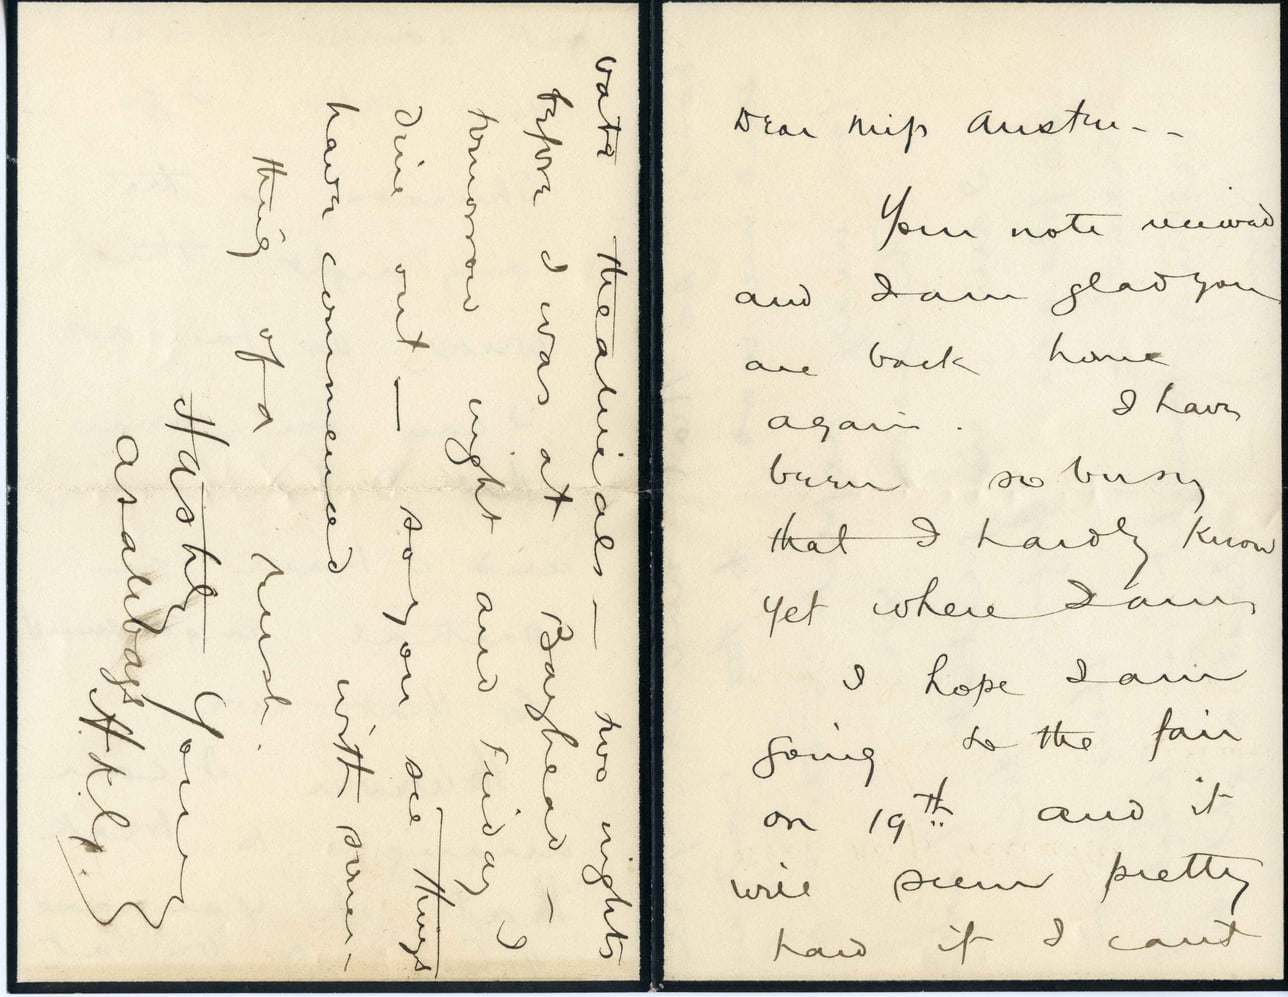 Dear Miss Austen - -
Your note received
and I am glad you
are back home
again. I have
been so busy
that I hardly know
yet where I am
I hope I am
going to the fair
on 19th and it
will seem pretty
hard if I cant
vate theatricals — two nights
before I was at Bayhead —
tomorrow night and Friday I
dine out — so you see things
have commenced with some-
thing of a rush.
Hastily Yours
as always